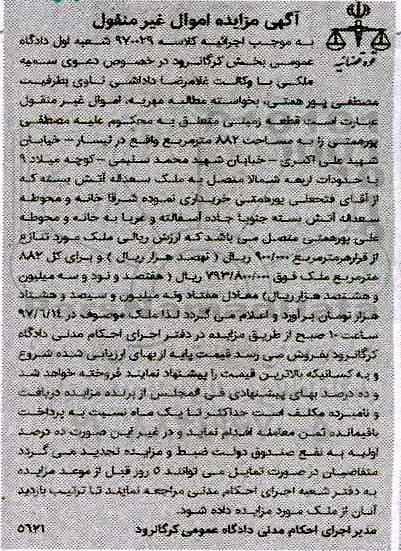 آگهی مزایده اموال غیر منقول
به موجب اجرائیه کلاسه ۹۷۰۰۲۹ شعبه اول دادگاه
عمومی بخش کرگانرود در خصوص دعوی سمیه
ملکی با وکالت غلامرضا داداشی ناوی بطرفیت
مصطفی پور همتی، بخواسته مطالبه مهریه، اموال غیر منقول
عبارت است قطعه زمینی متعلق به محکوم علیه مصطفی
پورهمتی را به مساحت ۸۸۲ مترمربع واقع در لیسار – خیابان
شهید علی اکبری – خیابان شهید محمد سلیمی – کوچه میلاد ۹
با حدودات اربعه شمالا متصل به ملک سعداله آتش بسته که
از آقای فتحعلی پورهمتی خریداری نموده شرقا خانه و محوطه
سعداله آتش بسته جنوبا جاده آسفالته و غربا به خانه و محوطه
علی پورهمتی متصل می باشد که ارزش ریالی ملک مورد تنازع
از قرارهرمترمربع ۹۰۰/۰۰۰ ریال ( نهصد هزار ریال ) و برای کل ۸۸۲
مترمربع ملک فوق ۷۹۳/۸۰۰/۰۰۰ ریال ( هفتصد و نود و سه میلیون
و هشتصد هزار ریال) معادل هفتاد ونه میلیون و سیصد و هشتاد
هزار تومان برآورد و اعلام می گردد لذا ملک موصوف در ۹۷/۶/۱۴
ساعت ۱۰ صبح از طریق مزایده در دفتر اجرای احکام مدنی دادگاه
کرگانرود بفروش می رسد قیمت پایه از بهای ارزیابی شده شروع
و به کسانیکه بالاترین قیمت را پیشنهاد نمایند فروخته خواهد شد
و ده درصد بهای پیشنهادی فی المجلس از برنده مزایده دریافت
و نامبرده مکلف است حداکثر تا یک ماه نسبت به پرداخت
باقیمانده ثمن معامله اقدام نماید و در غیر این صورت ده درصد
اولیه به نفع صندوق دولت ضبط و مزایده تجدید می گردد
متقاضیان در صورت تمایل می توانند ۵ روز قبل از موعد مزایده
به دفتر شعبه اجرای احکام مدنی مراجعه نمایند تا ترتیب بازدید
آنان از ملک مورد مزایده داده شود.
مدیر اجرای احکام مدنی دادگاه عمومی کرگانرود
۵۶۲۱